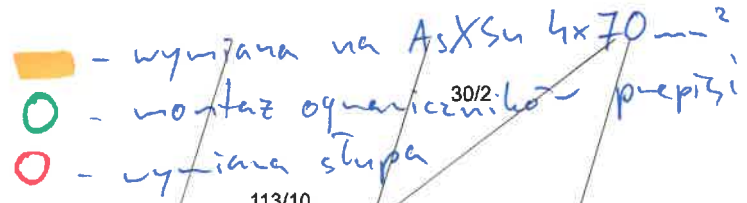 - wymiana na AsXSn 4x70 mm²
30/2
- montaż ograniczników przepięć
- wymiana słupa
113/10